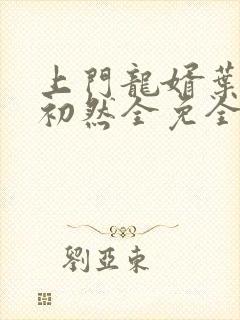 上門龍婿葉
初然全免全
劉亞東